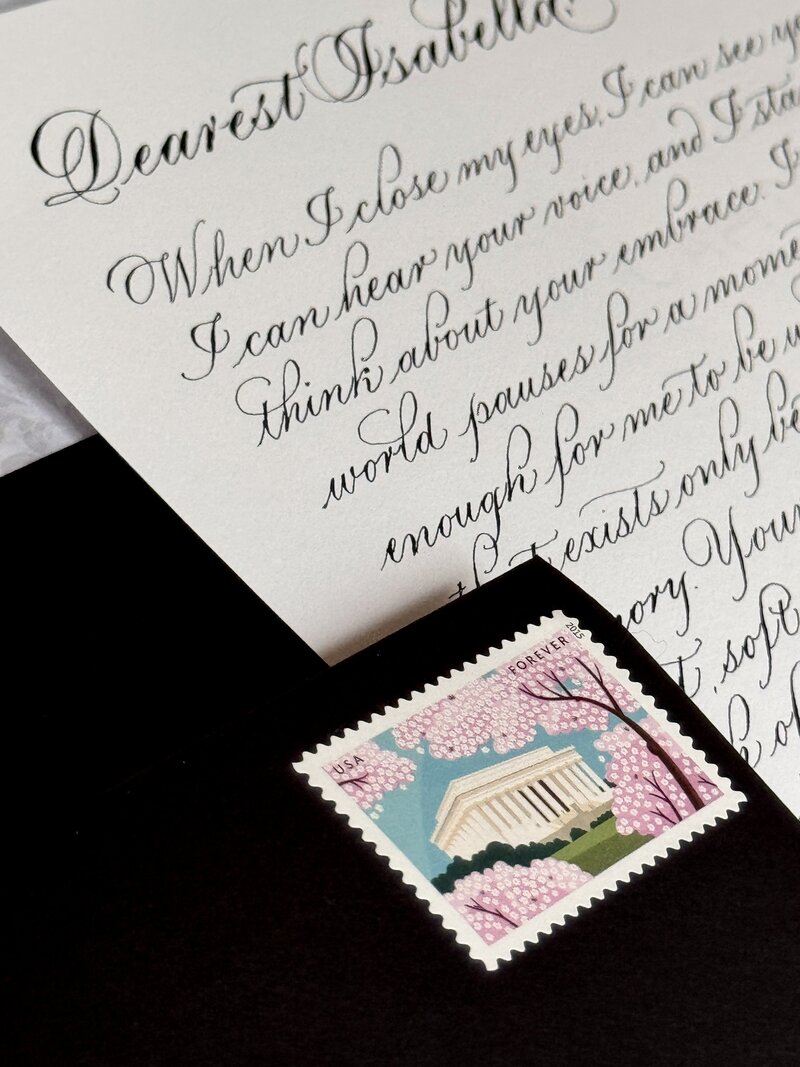 Dearest Isabella,
When I close my eyes, I can see
I can hear your voice, and I
think about your embrace. I
world pauses for a
enough for me to be
exists only
Your
soft
FOREVER
2015
USA